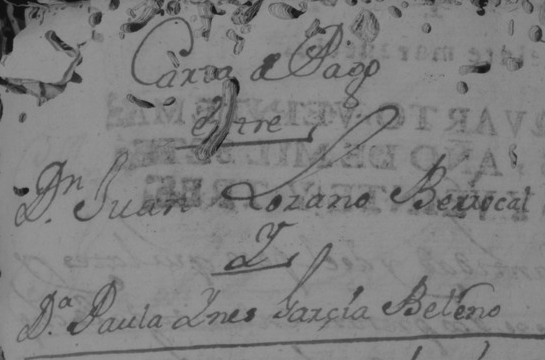 Carta de Pago
Entre
Dn. Juan Lozano Berrocal
Y
Da. Paula Ynes Garçia Beleno